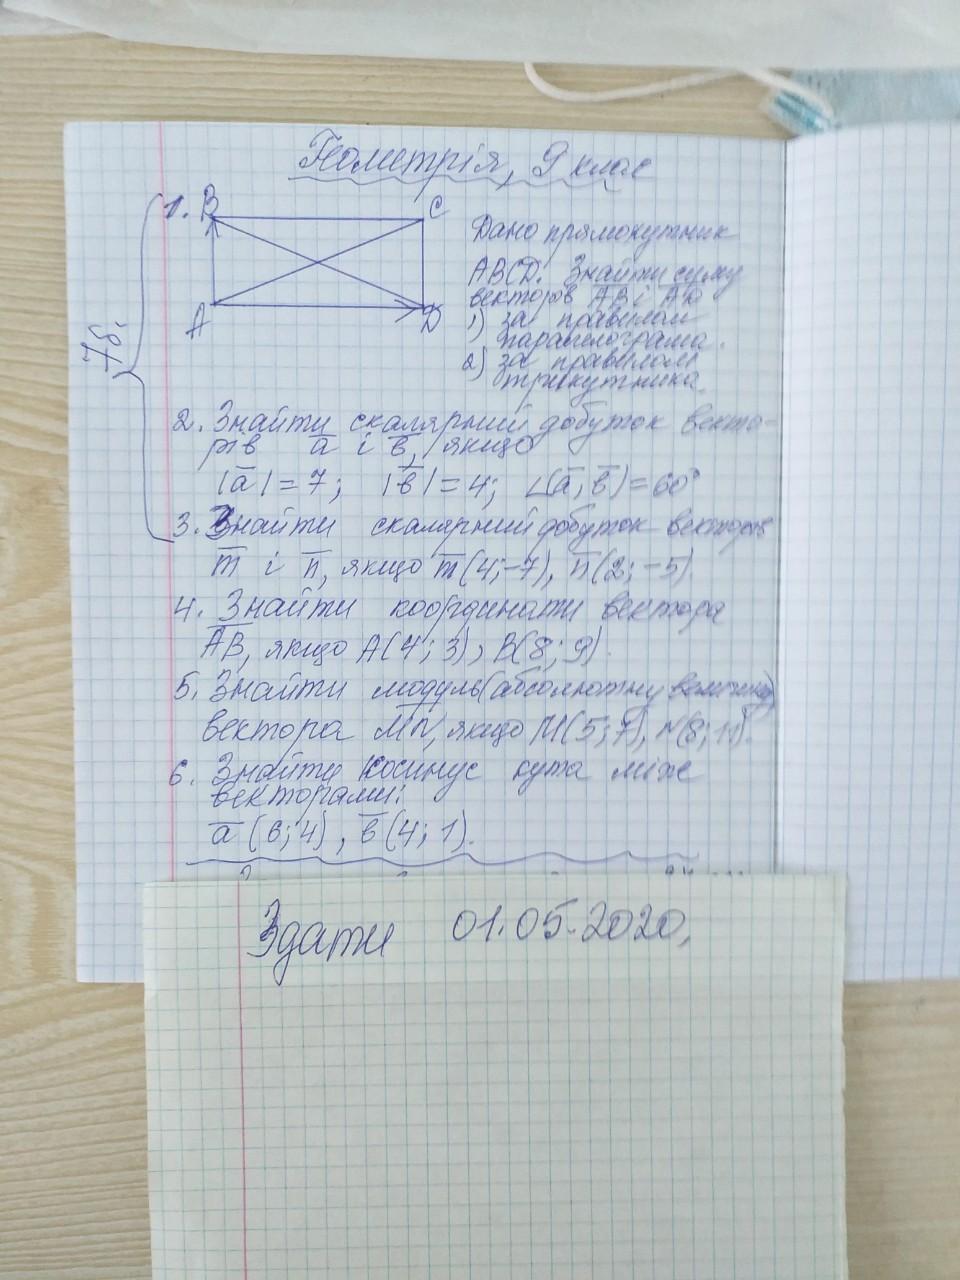 Геометрія, 9 клас
1. B C
A D
7б.
Дано прямокутник
ABCD. Знайти суму
векторів AB і AD
1) за правилом
паралелограма.
2) за правилом
трикутника.
2. Знайти скалярний добуток векто-
рів a̅ і b̅, якщо
|a̅| = 7; |b̅| = 4; ∠(a̅, b̅) = 60°
3. Знайти скалярний добуток векторів
m̅ і n̅, якщо m̅(4; -7), n̅(2; -5).
4. Знайти координати вектора
A̅B̅, якщо A(4; 3), B(8; 9).
5. Знайти модуль (абсолютну величину)
вектора M̅N̅, якщо M(5; 7), N(8; 11).
6. Знайти косинус кута між
векторами:
a̅ (6; 4), b̅ (4; 1).
Здати 01.05.2020.